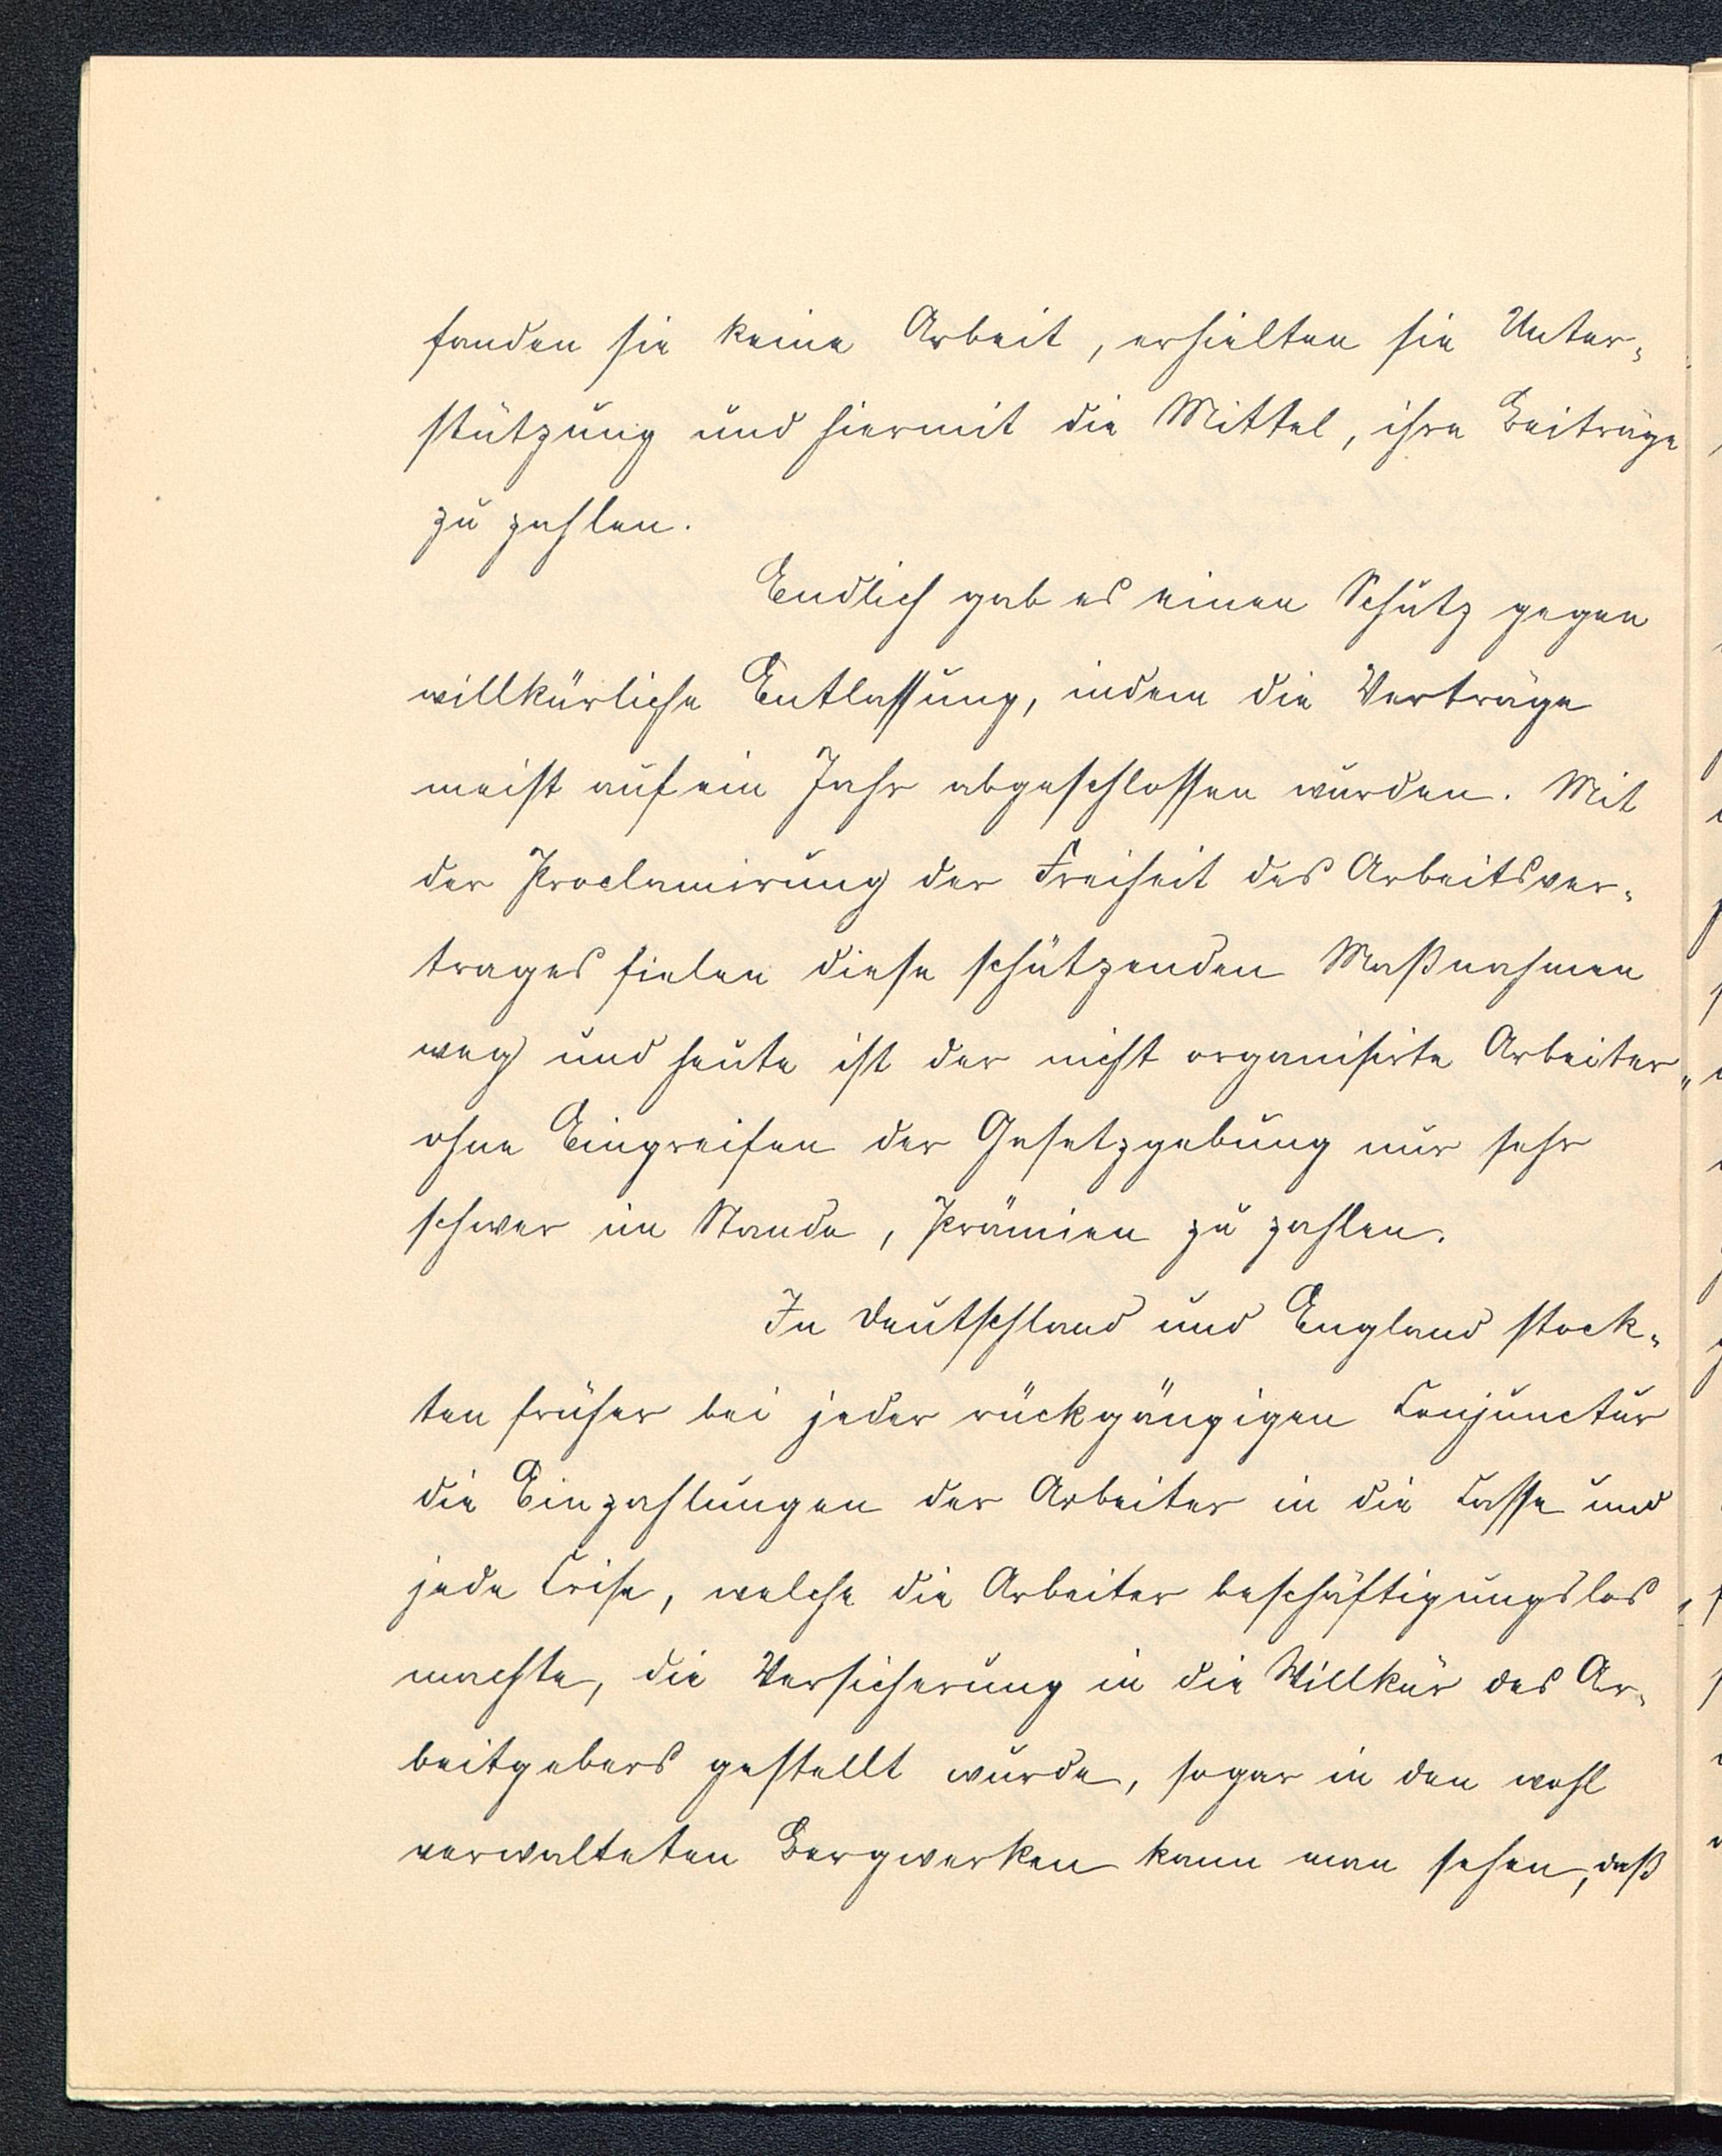 fanden sie keine Arbeit, erhielten sie Unter-
stützung und hiermit die Mittel, ihre Beiträge
zu zahlen.
Endlich gab es einen Schutz gegen
willkürliche Entlassung, indem die Verträge
meist auf ein Jahr abgeschlossen wurden. Mit
der Proclamirung der Freiheit des Arbeitsver-
trages fielen diese schützenden Maßnahmen
weg und heute ist der nicht organisirte Arbeiter
ohne Eingreifen der Gesetzgebung nur sehr
schwer im Stande, Prämien zu zahlen.
In Deutschland und England stock-
ten früher bei jeder rückgängigen Conjunctur
die Einzahlungen der Arbeiter in die Casse und
jede Crise, welche die Arbeiter beschäftigungslos
machte, die Versicherung in die Willkür des Ar-
beitgebers gestellt wurde, sogar in den wohl
verwalteten Bergwerken kann man sehen, daß